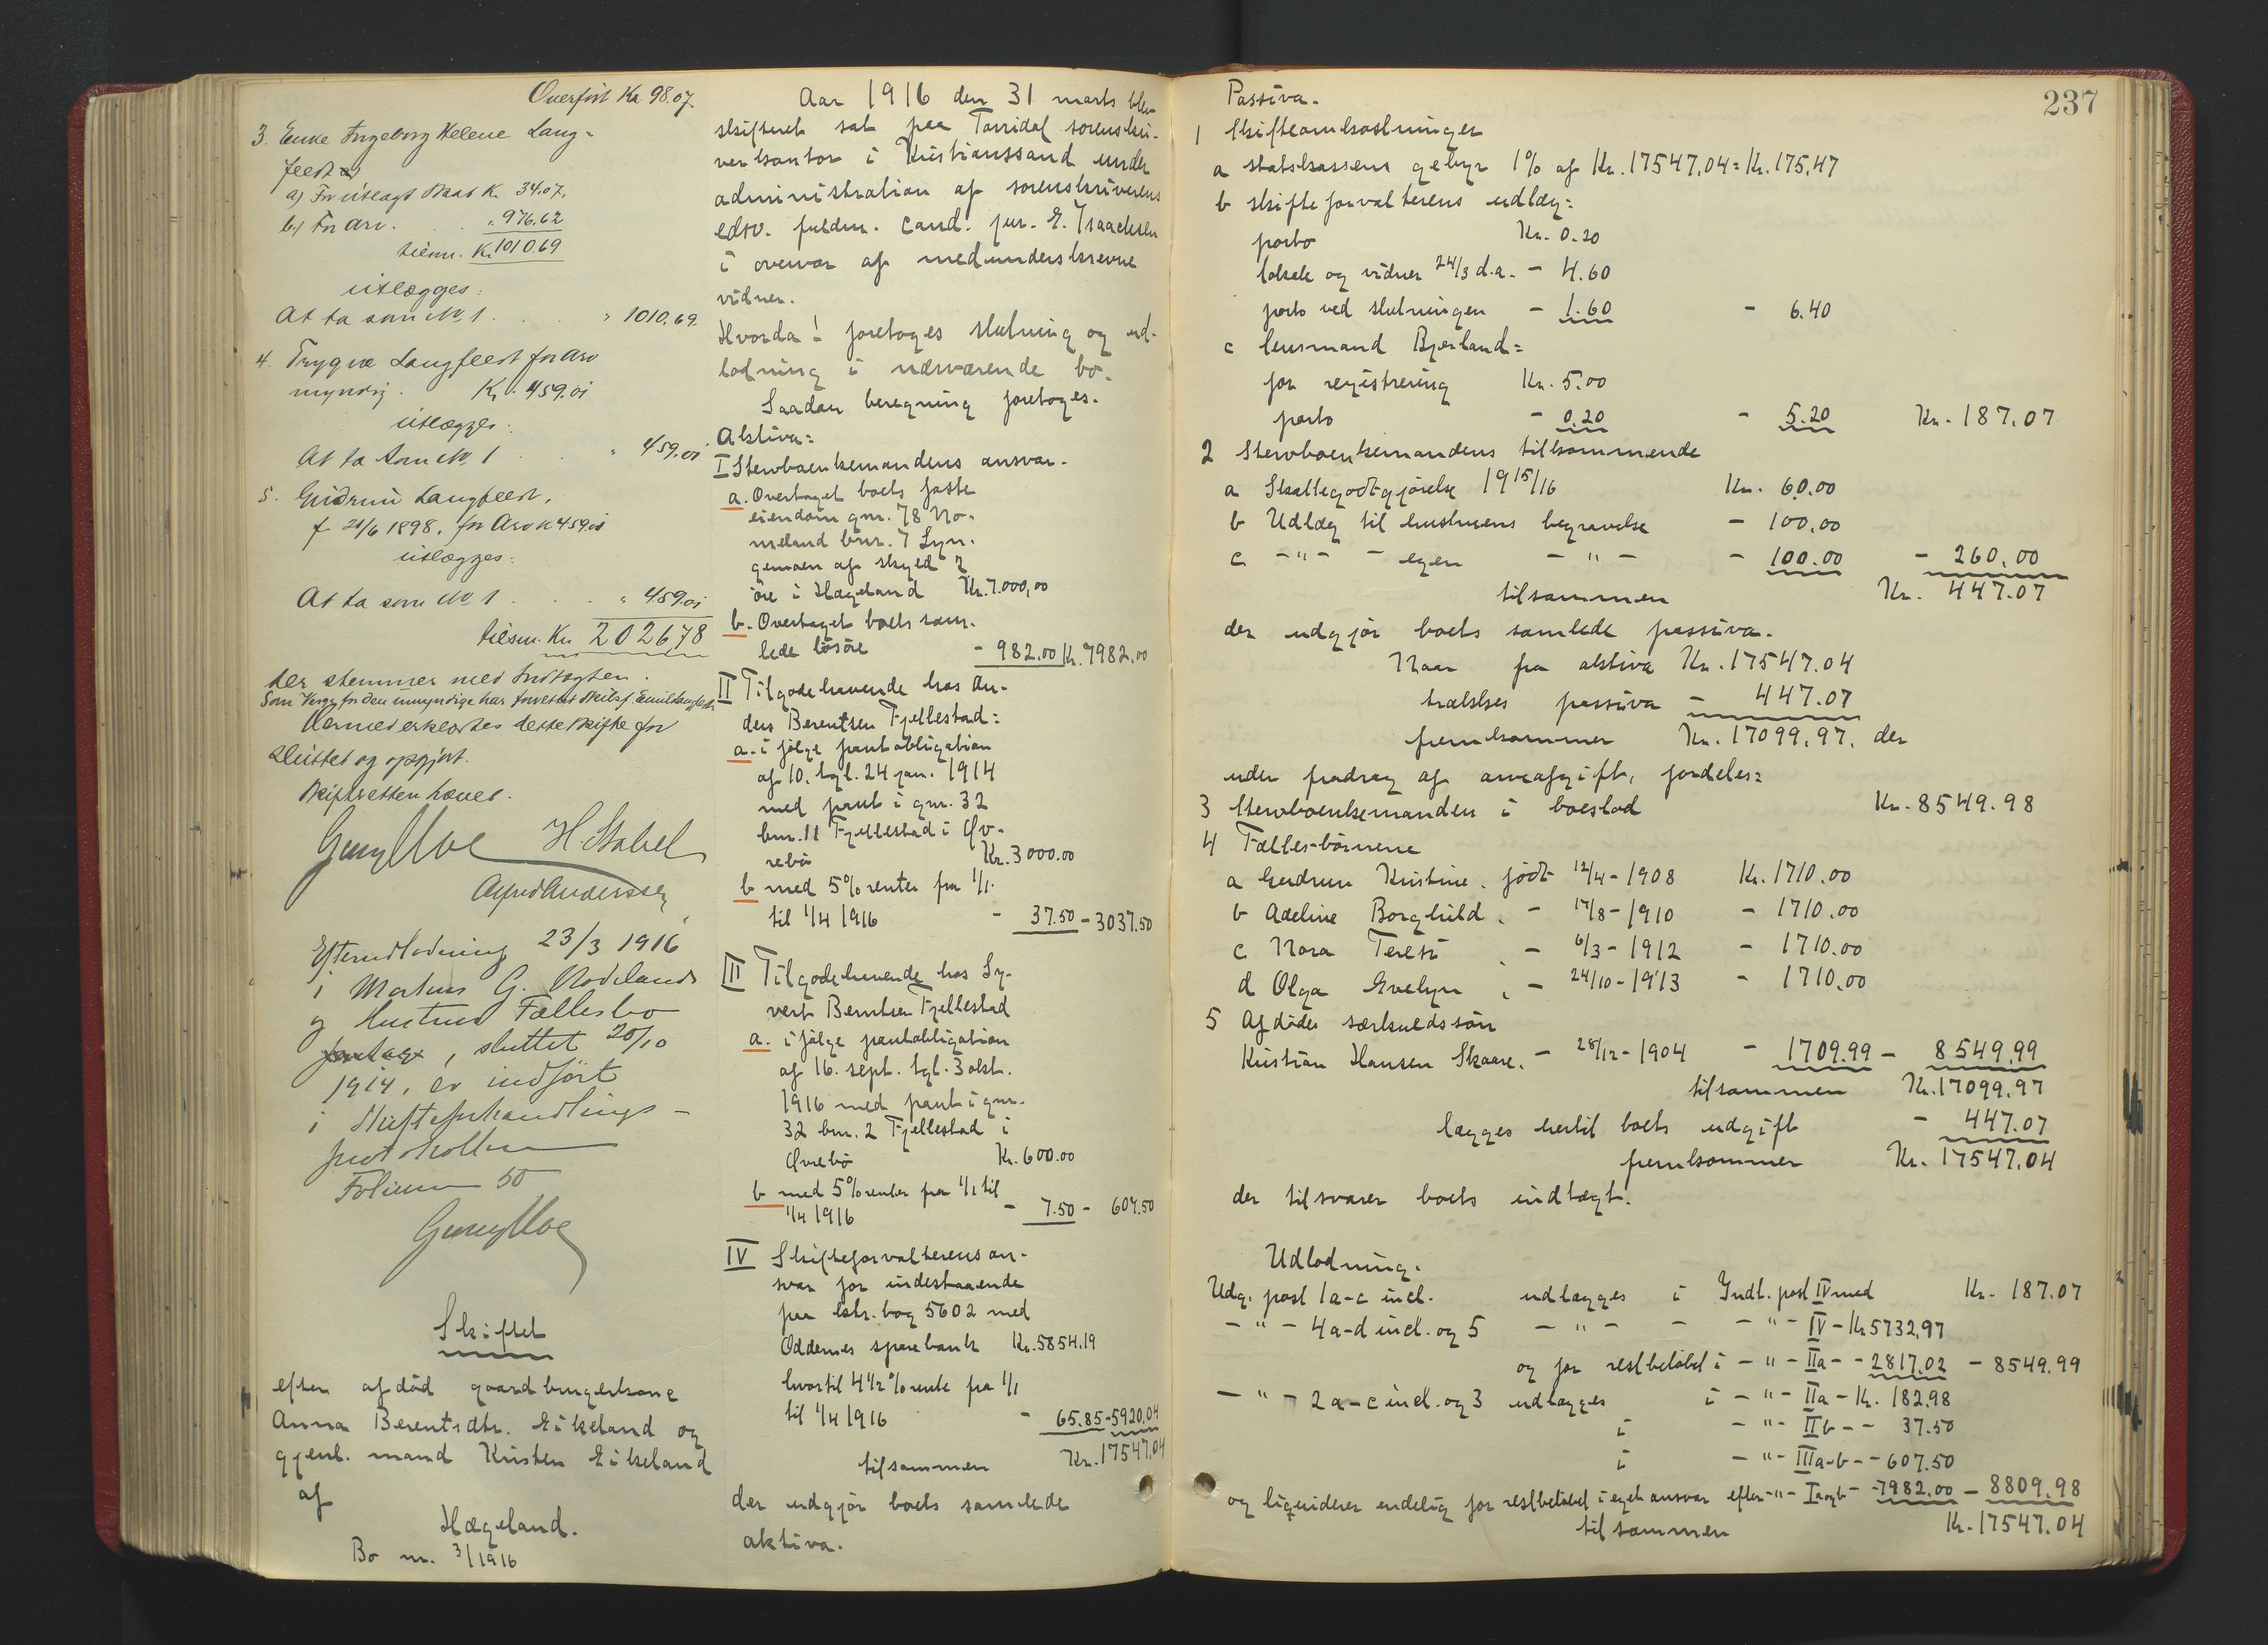 Overført Kr 98.07.
3. Enke Ingeborg Helene Lang-
feldt
a) For utlagt Skat Kr. 34.07.
b) For arv. . . " 976.62
tilsm. Kr 1010.69
utlægges:
At ta som No 1 . . . " 1010.69.
4. Trygve Langfeldt for arv
myndig. Kr. 459.01
utlægges:
At ta som No 1 . . " 459.01
5. Gudrun Langfeldt,
f. 21/6 1898, for Arv Kr 459.01
utlægges:
At ta som No 1 . . . " 459.01
tilsm. Kr 2026,78
der stemmer med Indtægten.
Som Verge for den umyndige har
Hermed erklærtes dette skifte for
sluttet og opgjort.
Skifteretten hævet.
H. Stabel
Alfred Anderssen
Efterudlodning 23/3 1916
i Mortens G. Rodelands
og Hustrus Fællesbo
foretaget, sluttet 20/10
1914, er indført
i Skifteforhandlings-
protokollen
Folium 50
Skiftet
efter afdød gaardbrugerkone
Anna Berentsdtr. Eikeland og
gjenl. mand Kristen Eikeland
af
Hægeland.
Bo nr. 3/1916
Aar 1916 den 31 marts blev
skifteret sat paa Torridal sorenskri-
verkontor i Kristianssand under
administration af sorenskriverens
edsv. fuldm. cand. jur. E. Isaachsen
i overvær af medunderskrevne
vidner.
Hvorda! foretoges slutning og ud-
lodning i nærværende bo.
Saadan beregning foretoges.
Aktiva:
I Stervboenkemandens ansvar.
a. Overtaget boets faste
eiendom gnr. 78 No-
meland bnr. 7 Lyn-
gemoen af skyld 2
öre i Hægeland Kr. 7.000,00
b. Overtaget boets sam-
lede lösöre - 982.00 Kr. 7982.00
II Tilgodehavende hos An-
ders Berentsen Fjellestad:
a. i fölge pantobligation
af 10. tgl. 24 jan. 1914
med pant i gnr. 32
bnr. 11 Fjellestad i Öv-
rebö Kr. 3000.00
b med 5% renter fra 1/1
til 1/4 1916 - 37.50 - 3037.50
III Tilgodehavende hos Sy-
vert Berntsen Fjellestad
a. i fölge pantobligation
af 16. sept. tgl. 3 okt.
1916 med pant i gnr.
32 bnr. 2 Fjellestad i
Övrebö Kr. 600.00
b med 5% renter fra 1/1 til
1/4 1916 - 7.50 - 607.50
IV Skifteforvalterens an-
svar for indestaaende
paa ktr. bog 5602 med
Oddernes sparebank Kr. 5854.19
hvortil 4 1/2 % rente fra 1/1
til 1/4 1916 - 65.85 - 5920.04
tilsammen Kr. 17547.04
der udgjör boets samlede
aktiva.
237
Passiva.
1 Skifteomkostninger
a statskassens gebyr 1% af Kr. 17547,04 = Kr. 175,47
b skifteforvalterens udlæg:
porto Kr. 0.20
lokale og vidner 24/3 d.a. - 4.60
porto ved slutningen - 1.60 - 6.40
c lensmand Bjerland:
for registrering Kr. 5.00
porto - 0.20 - 5.20 Kr. 187.07
2 Stervboenkemandens tilkommende
a Skattegodtgjörelse 1915/16 Kr. 60.00
b Udlæg til hustruens begravelse - 100.00
c - " - - egen - " - - 100.00 - 260.00
tilsammen Kr. 447.07
der udgjör boets samlede passiva.
Naar fra aktiva Kr. 17547.04
trækkes passiva - 447.07
fremkommer Kr. 17099.97. der
uden fradrag af arveafgift, fordeles:
3 Stervboenkemanden i boeslod Kr. 8549.98
4 Fælles-börnene
a Gudrun Kristine. födt 12/4 - 1908 Kr. 1710.00
b Adeline Borghild. - 17/8 - 1910 - 1710.00
c Nora Terese . - 6/3 - 1912 - 1710.00
d Olga Evelyn . - 24/10 - 1913 - 1710.00
5 Afdödes særkuldssön
Kristian Hansen Skaare. - 28/12 - 1904 - 1709.99 - 8549.99
tilsammen Kr. 17099.97
lægges hertil boets udgift - 447.07
fremkommer Kr. 17547.04
der tilsvarer boets indtægt.
Udlodning.
Udg. post 1a-c incl. udlægges i Indt. post IV med Kr. 187.07
- " - 4a-d incl. og 5 - " - - - " - IV - Kr. 5732.97
og for restbelöbet i - " - IIa - - 2817.02 - 8549.99
- " - 2a-c incl. og 3 udlægges i - " - IIa - Kr. 182.98
i - " - IIb - - 37.50
i - " - IIIa-b - - 607.50
og liquiderer endelig for restbelöbet i eget ansvar efter - " - I a og b - 7982.00 - 8809.98
tilsammen Kr. 17547.04